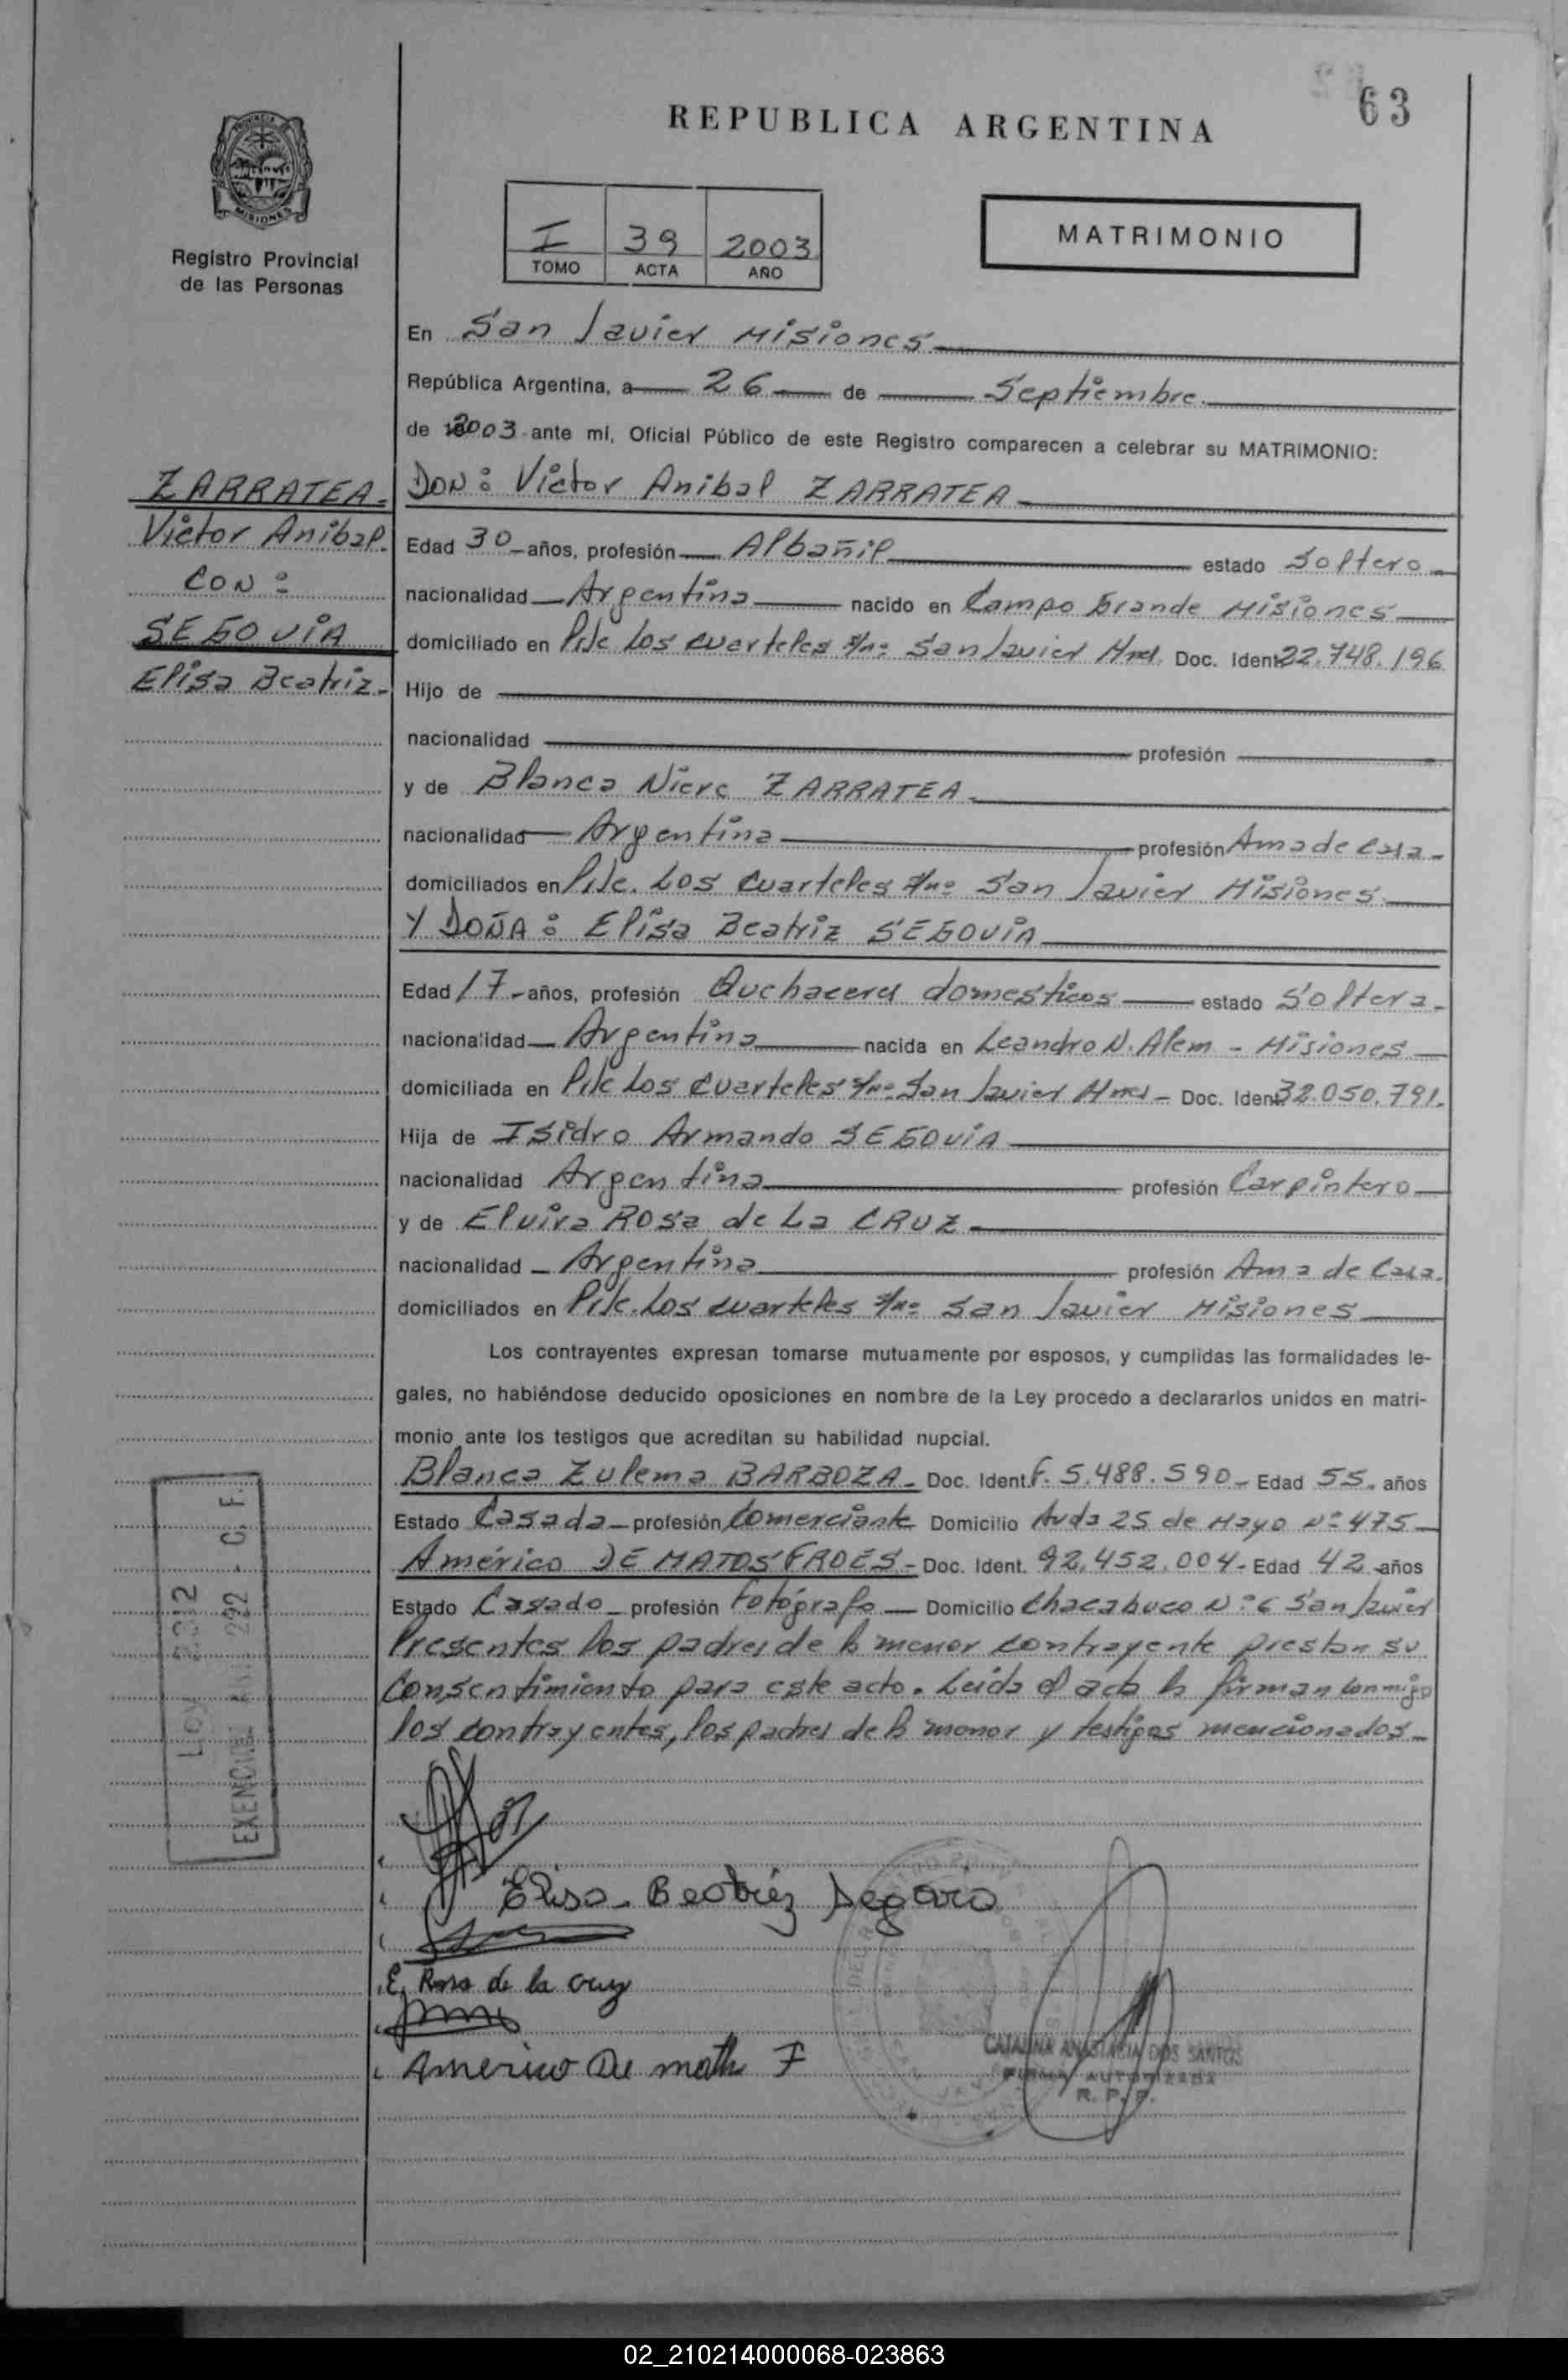 63
REPUBLICA ARGENTINA
PROVINCIA
MISIONES
Registro Provincial
de las Personas
I 39 2003
TOMO ACTA AÑO
MATRIMONIO
En San Javier Misiones
República Argentina, a 26 de Septiembre
de 2003 ante mí, Oficial Público de este Registro comparecen a celebrar su MATRIMONIO:
ZARRATEA
Victor Anibal
CON:
SEGOVIA
Elisa Beatriz
DON: Victor Anibal ZARRATEA
Edad 30 años, profesión Albañil estado Soltero
nacionalidad Argentina nacido en Campo Grande Misiones
domiciliado en Pje Los Cuarteles s/nº San Javier Mnes. Doc. Ident. 22.748.196
Hijo de
nacionalidad profesión
y de Blanca Nieve ZARRATEA
nacionalidad Argentina profesión Ama de Casa
domiciliados en Pje. Los Cuarteles s/nº San Javier Misiones
Y DOÑA: Elisa Beatriz SEGOVIA
Edad 17 años, profesión Quehaceres domesticos estado Soltera
nacionalidad Argentina nacida en Leandro N. Alem - Misiones
domiciliada en Pje Los Cuarteles s/nº San Javier Mnes - Doc. Ident. 32.050.791.
Hija de Isidro Armando SEGOVIA
nacionalidad Argentina profesión Carpintero
y de Elvira Rosa de La CRUZ
nacionalidad Argentina profesión Ama de Casa.
domiciliados en Pje. Los Cuarteles s/nº San Javier Misiones
Los contrayentes expresan tomarse mutuamente por esposos, y cumplidas las formalidades le-
gales, no habiéndose deducido oposiciones en nombre de la Ley procedo a declararlos unidos en matri-
monio ante los testigos que acreditan su habilidad nupcial.
Blanca Zulema BARBOZA Doc. Ident. F. 5.488.590 Edad 55 años
Estado Casada profesión Comerciante Domicilio Avda 25 de Mayo Nº 475
Américo DE MATOS FROES Doc. Ident. 92.452.004 Edad 42 años
Estado Casado profesión Fotógrafo Domicilio Chacabuco Nº 6 San Javier
Presentes los padres de la menor contrayente prestan su
Consentimiento para este acto. Leida el acta la firman conmigo
los contrayentes, los padres de la menor y testigos mencionados
LEY 2312
EXENCION 292 - C. F.
Elisa Beatriz Segovia
E. Rosa de la cruz
Americo De F
CATALINA ANASTACIA DOS SANTOS
FIRMA AUTORIZADA
R. P. P.
02_210214000068-023863